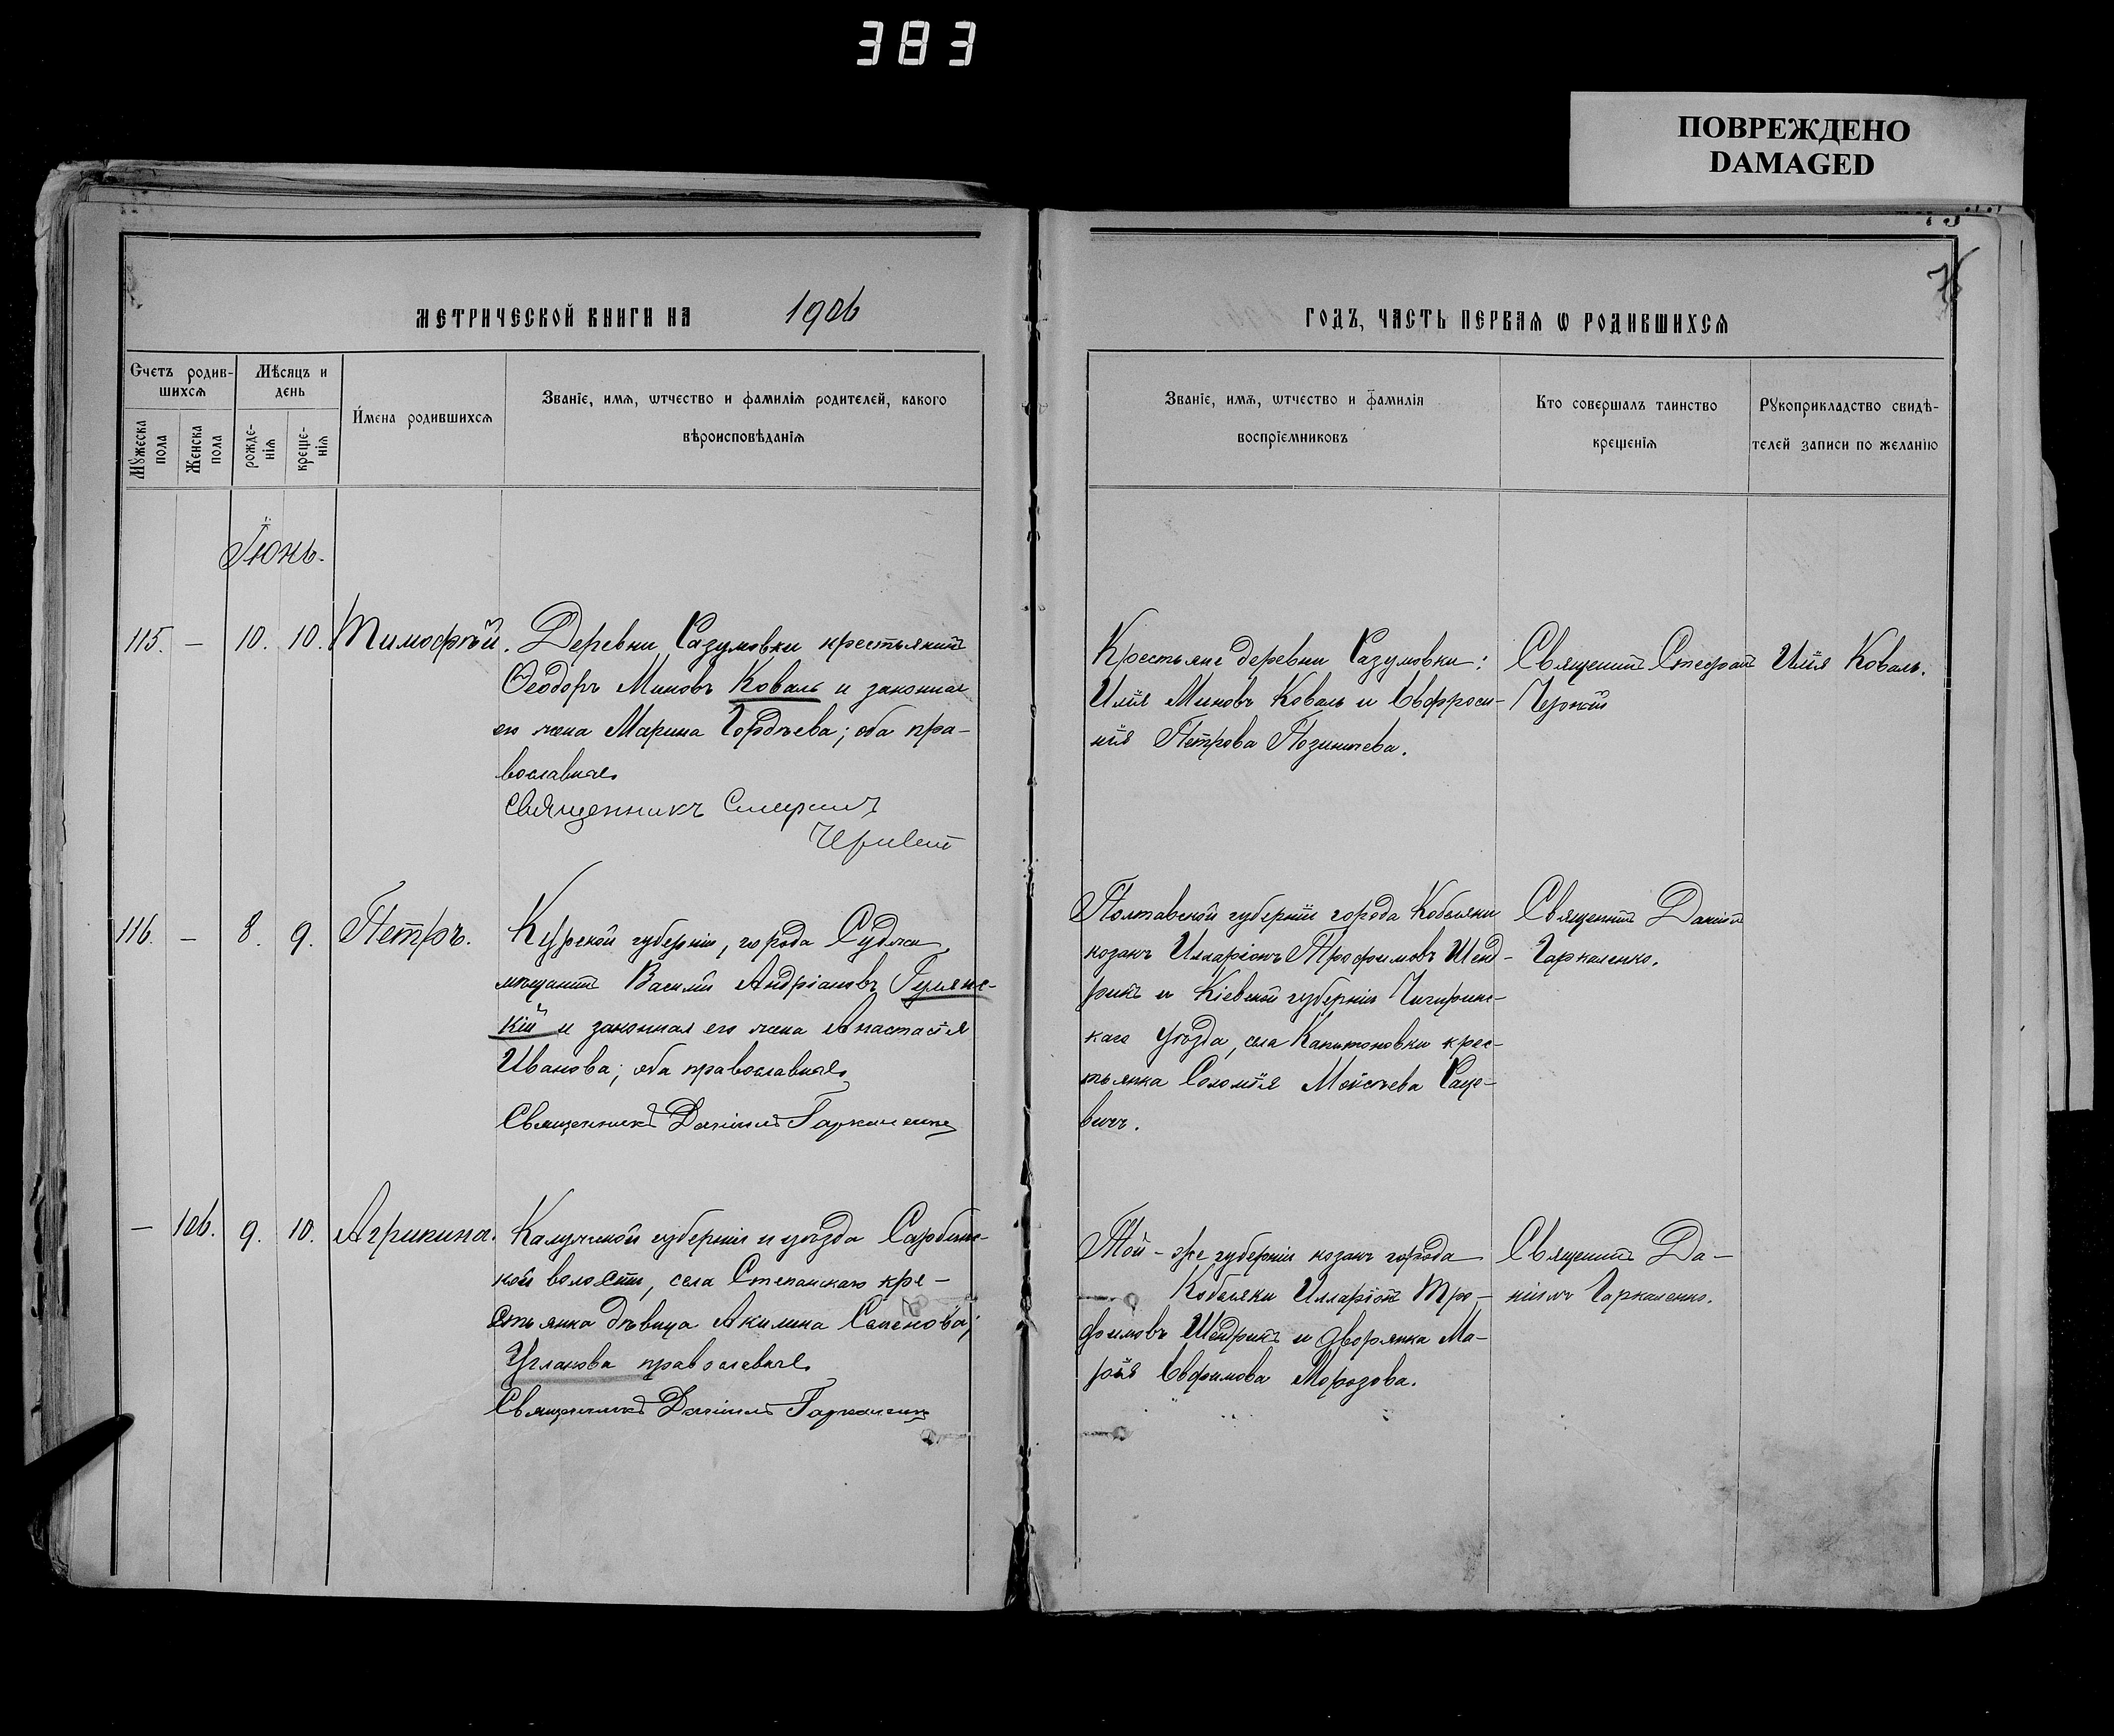 383
ПОВРЕЖДЕНО
DAMAGED
МЕТРИЧЕСКОЙ КНИГИ НА 1906
ГОДЪ, ЧАСТЬ ПЕРВАѦ Ѡ РОДИВШИХСѦ
Счетъ родив-
шихсѧ
Мѣсяцъ и
день
Мꙋжеска
пола
Женска
пола
рожде-
нія
креще-
нія
Имена родившихсѧ
Званіе, имѧ, ѡтчество и фамиліѧ родителей, какого
вѣроисповѣданіѧ
Званіе, имѧ, ѡтчество и фамилія
воспріемниковъ
Кто совершалъ таинство
крещеніѧ
Рꙋкоприкладство свидѣ-
телей записи по желанію
Іюнь.
115. — 10. 10. Тимофѣй.
Деревни Разумовки крестьянинъ
Ѳеодоръ Миновъ Коваль и законная
его жена Марина Гордѣева; оба пра-
вославные
Священникъ Стефанъ
Крестьяне деревни Разумовки:
Илія Миновъ Коваль и Евфроси-
нія Петрова
Священникъ Стефанъ
Илія Коваль.
116. — 8. 9. Петръ.
Курской губерніи, города Суджи
мѣщанинъ Василій Андріановъ Гулянс-
кій и законная его жена Анастасія
Иванова; оба православные
Священникъ Даніилъ Гаркаленко
Полтавской губерніи города Кобеляки
козакъ Илларіонъ Трофимовъ Шенд-
рикъ и Кіевской губерніи Чигиринс-
каго уѣзда, села Капитоновки крес-
тьянка Соломія Моисѣева
Священникъ Даніилъ
Гаркаленко.
— 106. 9. 10. Агрипина.
Калужской губерніи и уѣзда
кой волости, села кре-
стьянка дѣвица Акилина Семенова;
Угланова православные
Священникъ Даніилъ Гаркаленко
Той-же губерніи козакъ города
Кобеляки Илларіонъ Тро-
фимовъ Шендрикъ и дворянка Ма-
рія Евфимова Морозова.
Священникъ Да-
ніилъ Гаркаленко.